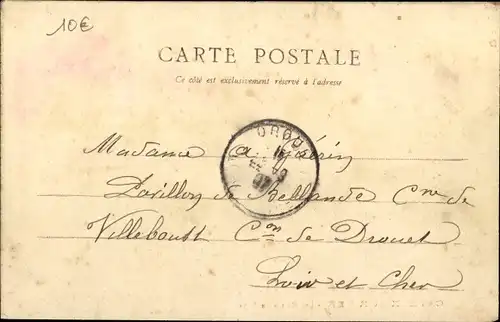 10€
CARTE POSTALE
Ce côté est exclusivement réservé à l'adresse
Madame
Pavillon de Bellande Cne de
Villebout Con de Drouet
Loir et Cher